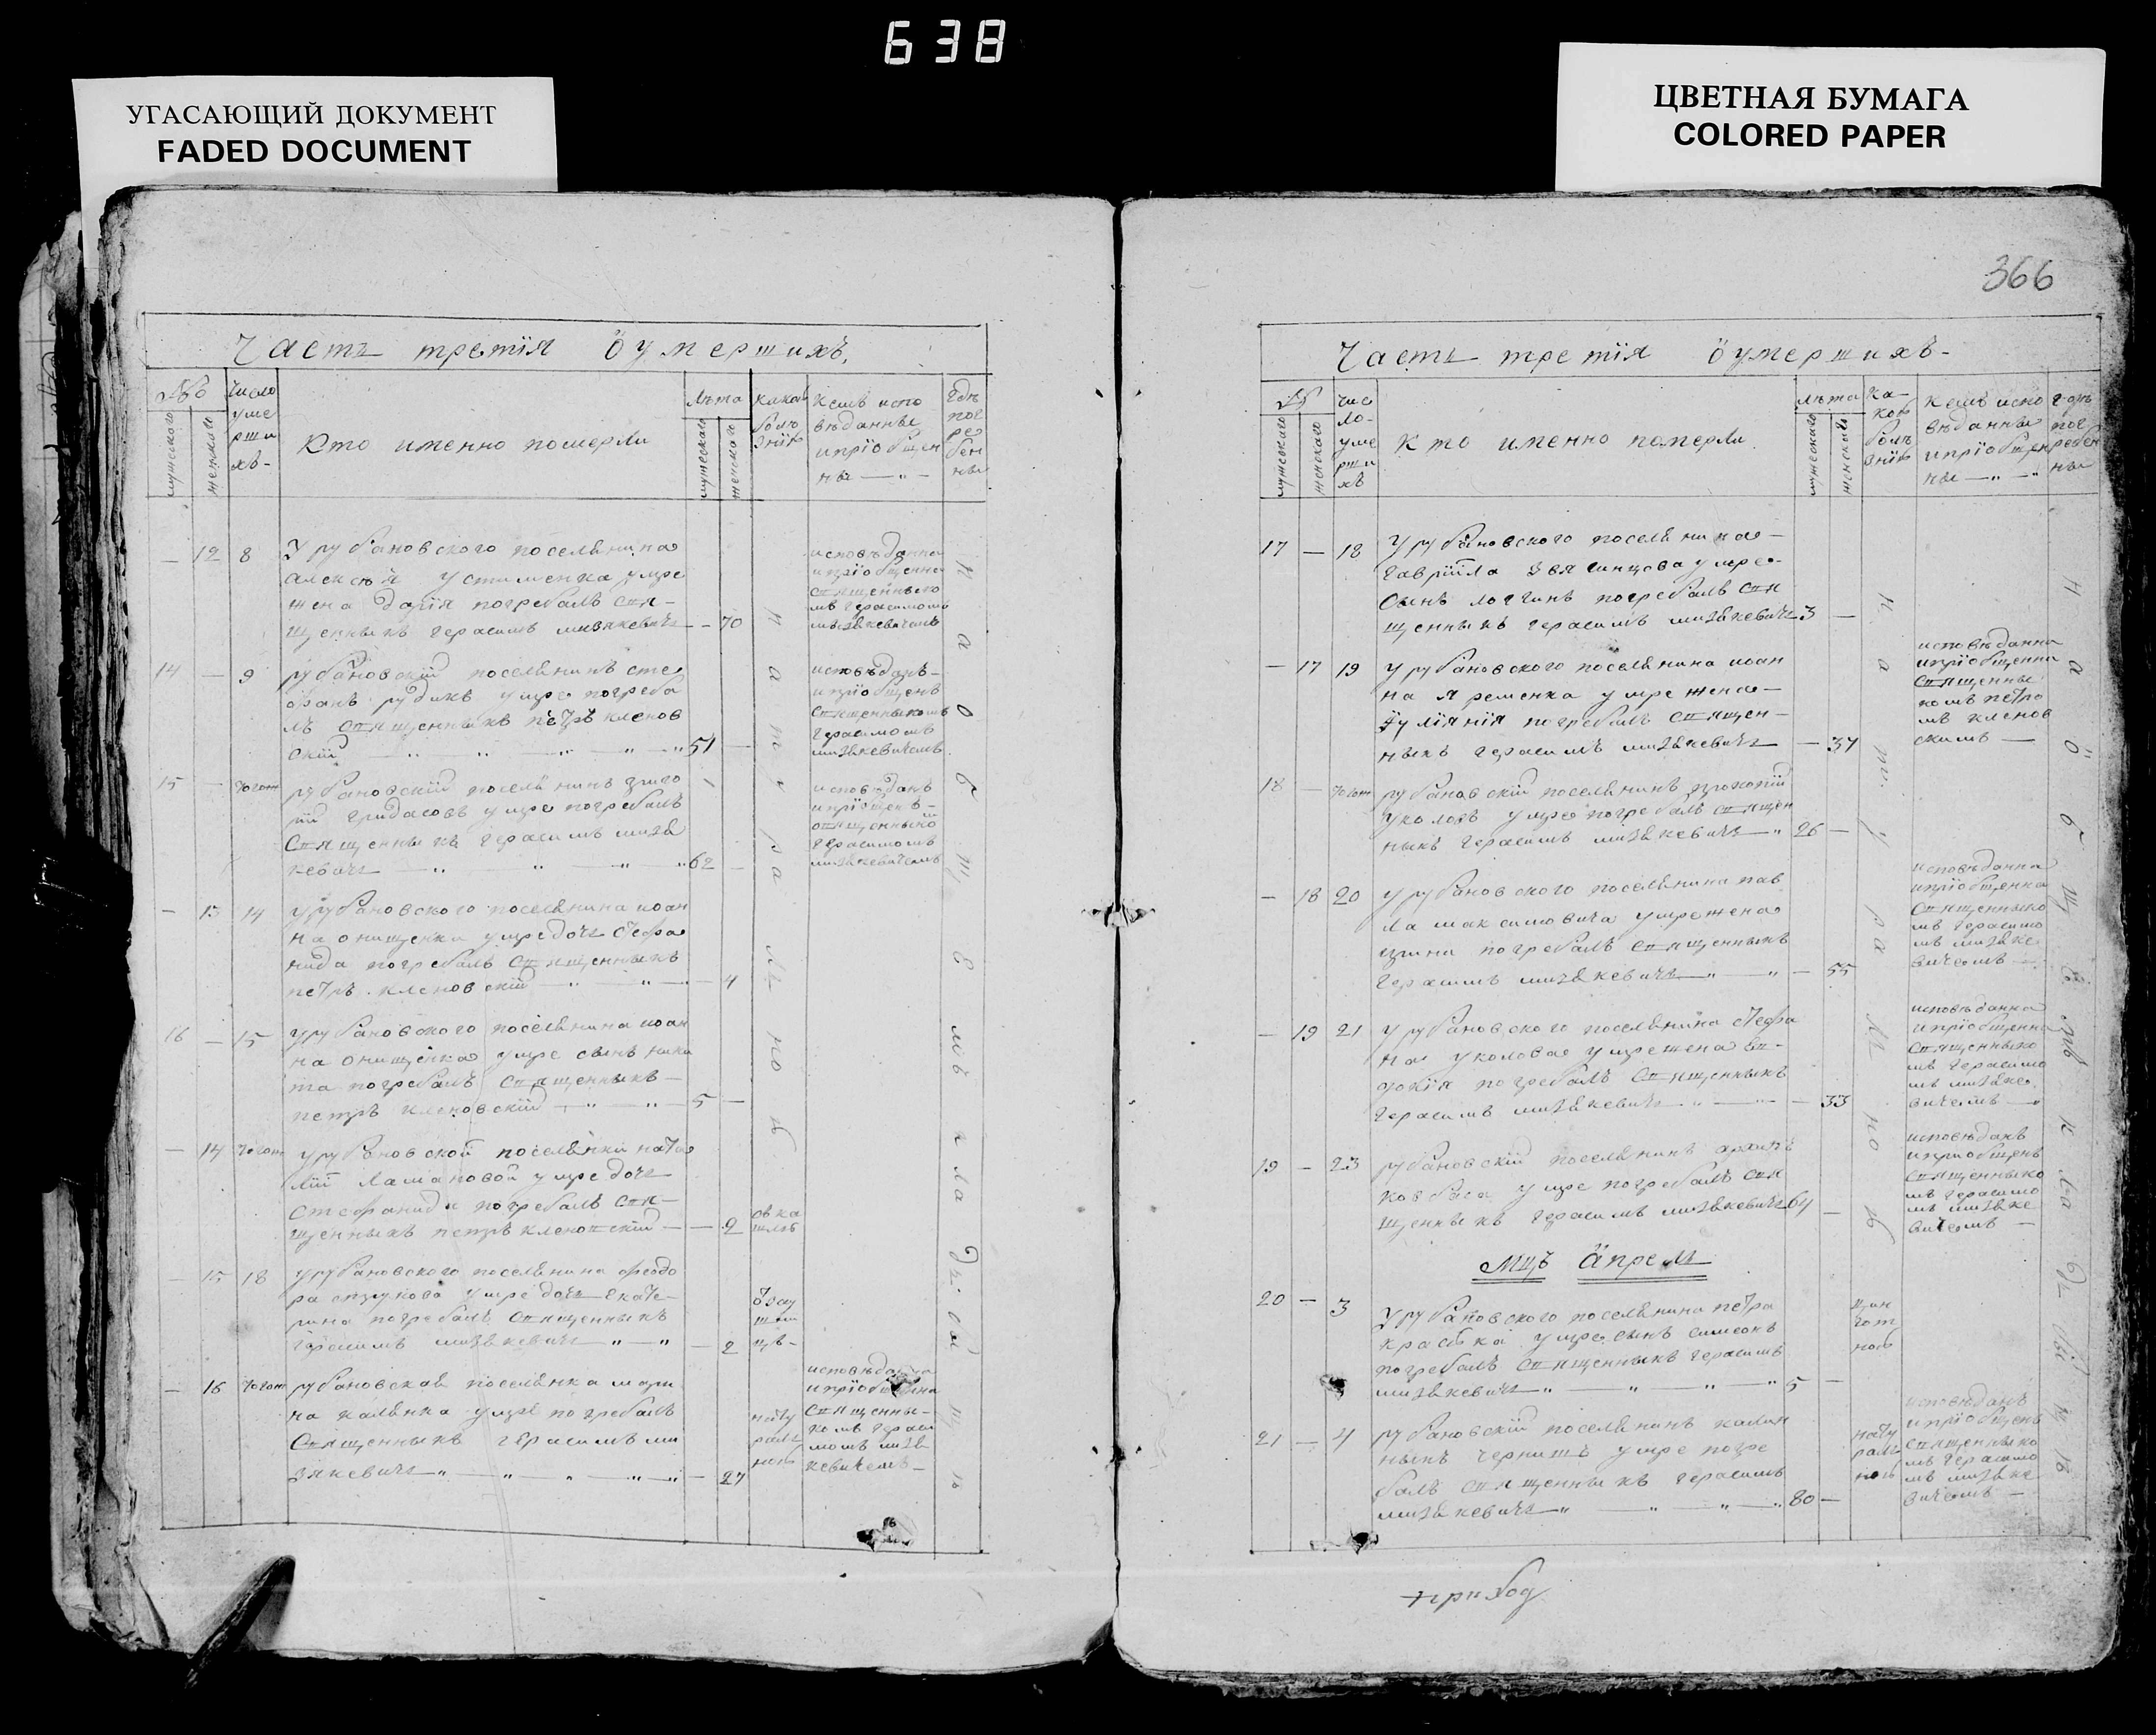 638
УГАСАЮЩИЙ ДОКУМЕНТ
FADED DOCUMENT
ЦВЕТНАЯ БУМАГА
COLORED PAPER
Часть третïя о умершихъ.
№
мужескаго
женскаго
число
уме
рши
хъ-
Кто именно померли
лѣта
мужескаго
женскаго
какой
болѣ
знïю
Кемъ испо
вѣданны
и прïобщен
ны — „ —
Гдѣ
пог
ре
бен
ны
— 12 8 У рубановского поселянина
алексѣя устименка умре
жена дарïя погребалъ свя-
щенникъ герасимъ мизякевичь — 70
исповѣданна
и прïобщенна
священнико
мъ герасимомъ
мизякевичемъ
14 — 9 рубановскïй поселянинъ сте
фанъ рудикъ умре погреба
лъ священникъ петръ кленов
скïй — „ — „ — „ — „ 51 —
исповѣданъ-
и прïобщенъ
священникомъ
герасимомъ
мизякевичемъ
15 — тогож рубановскïй поселянинъ григо
рïй гридасовъ умре погребалъ
священникъ герасимъ мизя
кевичь — „ — „ — „ — „ 62 —
исповѣданъ
и прïобщенъ-
священнико
герасимомъ
мизякевичемъ
— 13 14 у рубановского поселянина иоан
на онищенка умре дочь стефа
нида погребалъ священникъ
петръ кленовскïй — „ — „ — 4
16 — 15 у рубановского поселянина иоан
на онищенка умре сынъ ники
та погребалъ священникъ —
петръ кленовскïй — „ — „ — 5 —
— 14 тогож у рубановской поселянки ната
лïи лашановой умре дочь
стефанида погребалъ свя-
щенникъ петръ кленовскïй — — 2
ѿ ка
шля
— 15 18 у рубановского поселянина феодо
ра умре дочь екате-
рина погребалъ священникъ
герасимъ мизякевичь „ — „ — 2
— 16 тогож рубановская поселянка мари
на калѣнка умре погребалъ
священникъ герасимъ ми
зякевичь „ — „ — „ — „ — „ — 27
нату
раль
ною
исповѣданна
и прïобщенна
священни-
комъ гераси
момъ мизя
кевичемъ-
натуральною
на общемъ кладбищѣ
366
Часть третïя о умершихъ-
№
мужескаго
женскаго
чис
ло-
уме
рши
хъ
Кто именно померли.
лѣта
мужескаго
женскаго
Ка-
кой
болѣ
знïю
Кемъ испо
вѣданны
и прïобщен
ны — „ — „
гдѣ
пог
ребен
ны
17 — 18 У рубановского поселянина —
гаврïила звягинцова умре
сынъ логгинъ погребалъ свя
щенникъ герасимъ мизякевичь 3 —
— 17 19 у рубановского поселянина иоан
на яременка умре жена —
ïулïянïя погребалъ священ-
никъ герасимъ мизякевичь — 37
исповѣданна
и прïобщенна
священни
комъ петро
мъ кленов
скимъ —
18 — тогож рубановскïй поселянинъ прокопïй
уколовъ умре погребалъ священ
никъ герасимъ мизякевичь — „ 26 —
— 18 20 у рубановского поселянина пав
ла максимовича умре жена
ирина погребалъ священникъ
герасимъ мизякевичь — „ — „ — 55
исповѣданна
и прïобщенна
священнико
мъ герасимо
мъ мизяке
вичемъ —
— 19 21 у рубановского поселянина стефа
на уколова умре жена ев-
докïя погребалъ священникъ
герасимъ мизякевичь — „ — — 33
исповѣданна
и прïобщенна
священнико
мъ герасимо
мъ мизяке
вичемъ — „
19 — 23 рубановскïй поселянинъ архипъ
ковбаса умре погребалъ свя
щенникъ герасимъ мизякевичь 64 —
исповѣданъ
и прïобщенъ
священнико
мъ герасимо
мъ мизяке
вичемъ —
Мцъ апрель
20 — 3 У рубановского поселянина петра
умре сынъ симеонъ
погребалъ священникъ герасимъ
мизякевичь „ — „ — „ — „ 5 —
цын
гот
ною
21 — 4 рубановскïй поселянинъ калин
никъ чернишъ умре погре
балъ священникъ герасимъ
мизякевичь „ — „ — „ — „ 80 —
нату
раль
ною
исповѣданъ
и прïобщенъ
священнико
мъ герасимо
мъ мизяке
вичемъ —
натуральною
на общемъ кладбищѣ
приход